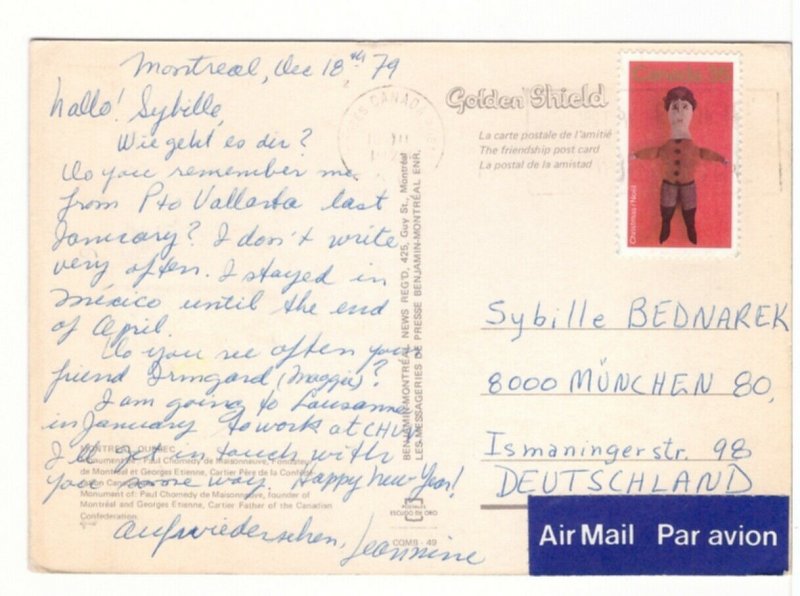 Montreal, Dec 18th 79
hallo! Sybille,
Wie geht es dir?
Do you remember me
from Pto Vallarta last
January? I don't write
very often. I stayed in
México until the end
of April.
Do you see often your
friend Irmgard (Maggie)?
I am going to Lausanne
in January to work at CHUV
I'll get in touch with
you some way. Happy New Year!
aufwiedersehen, Jeannine
MONTREAL, QUEBEC
Monument de: Paul Chomedy de Maisonneuve, Fondateur
de Montréal et Georges Etienne, Cartier Père de la Confédé-
Monument of: Paul Chomedy de Maisonneuve, founder of
Montréal and Georges Etienne, Cartier Father of the Canadian
Confederation.
BENJAMIN-MONTRÉAL NEWS REG'D, 425, Guy St., Montréal
LES MESSAGERIES DE PRESSE BENJAMIN-MONTRÉAL ENR.
ESCUDO DE ORO
COMB - 49
CANADA
Golden Shield
La carte postale de l'amitié
The friendship post card
La postal de la amistad
Canada 35
Christmas / Noël
Sybille BEDNAREK
8000 MÜNCHEN 80,
Ismaningerstr. 98
DEUTSCHLAND
Air Mail Par avion